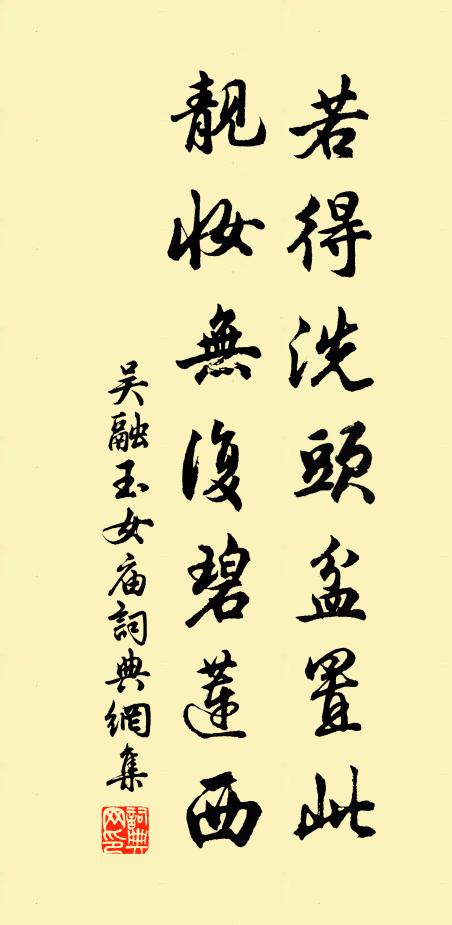 若得洗頭盆置此
靚妝無復碧蓮西
吴融玉女庙詞典網集
詞典網印